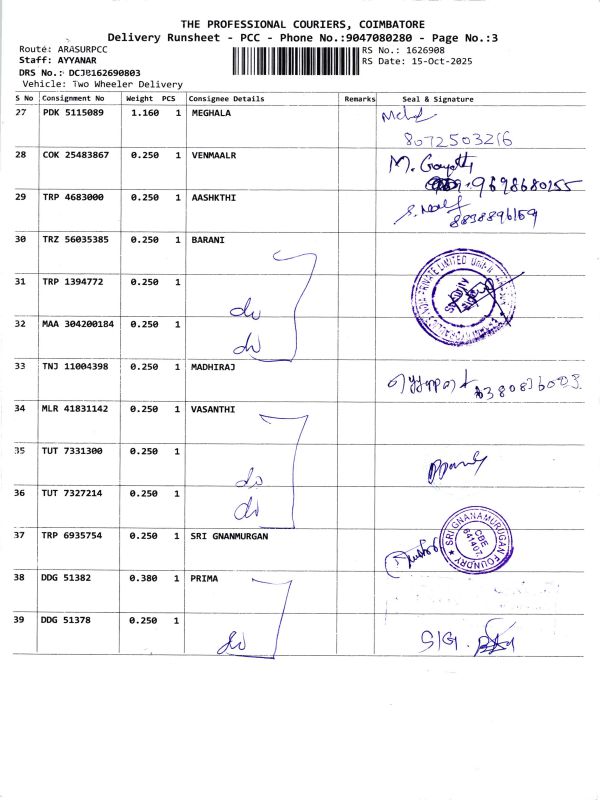 THE PROFESSIONAL COURIERS, COIMBATORE
Delivery Runsheet - PCC - Phone No.:9047080280 - Page No.:3
Route: ARASURPCC RS No.: 1626908
Staff: AYYANAR RS Date: 15-Oct-2025
DRS No.: DCJ8162690803
Vehicle: Two Wheeler Delivery
S No Consignment No Weight PCS Consignee Details Remarks Seal & Signature
27 PDK 5115089 1.160 1 MEGHALA
8072503216
28 COK 25483867 0.250 1 VENMAALR
9698680155
29 TRP 4683000 0.250 1 AASHKTHI
8838896159
30 TRZ 56035385 0.250 1 BARANI
31 TRP 1394772 0.250 1 do
32 MAA 304200184 0.250 1 do
33 TNJ 11004398 0.250 1 MADHIRAJ
34 MLR 41831142 0.250 1 VASANTHI
35 TUT 7331300 0.250 1 do
36 TUT 7327214 0.250 1 do
37 TRP 6935754 0.250 1 SRI GNANMURGAN
SRI GNANAMURUGAN FOUNDRY
CBE
641407
38 DDG 51382 0.380 1 PRIMA
39 DDG 51378 0.250 1 do